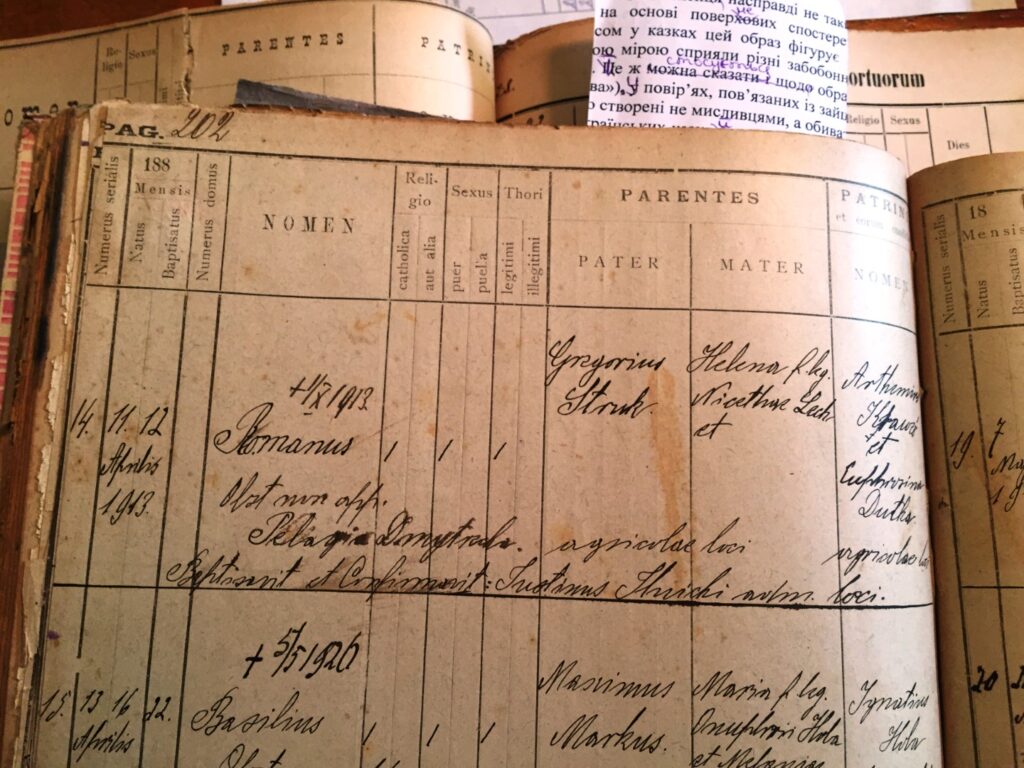 насправді не так
на основі поверхових спостере
не
сом у казках цей образ фігурує
ою мірою сприяли різні забобонн
. Це ж можна сказати і щодо обра
ва»). У повір'ях, пов'язаних із зайц
о створені не мисливцями, а обива
PARENTES
Religio
Sexus
ortuorum
Religio
Sexus
Dies
PAG. 202
Numerus serialis
188
Mensis
Natus
Baptisatus
Numerus domus
NOMEN
Religio
catholica
aut alia
Sexus
puer
puella
Thori
legitimi
illegitimi
PARENTES
PATER
MATER
PATRINI
et eorum
NOMEN
Numerus serialis
18
Mensis
Natus
Baptisatus
14. 11. 12
Aprilis
1913.
+ 1/X 1913
Romanus
Obst non app.
Pelagia Dmytrula.
Gregorius
Struk.
agricolae loci
Helena f. leg.
Nicethae Lech
et
Arthemius
et
Euphrosina
Dutka
agricolae loci
Baptisavit et Confirmavit: Justinus Ilnicki adm. loci.
19. 7
+ 5/5 1926
15. 13 16 22.
Aprilis
Basilius
Obst
Maximus
Markus.
Maria f. leg.
Onuphrii Hola
et Melaniae
Ignatius
Hola
20